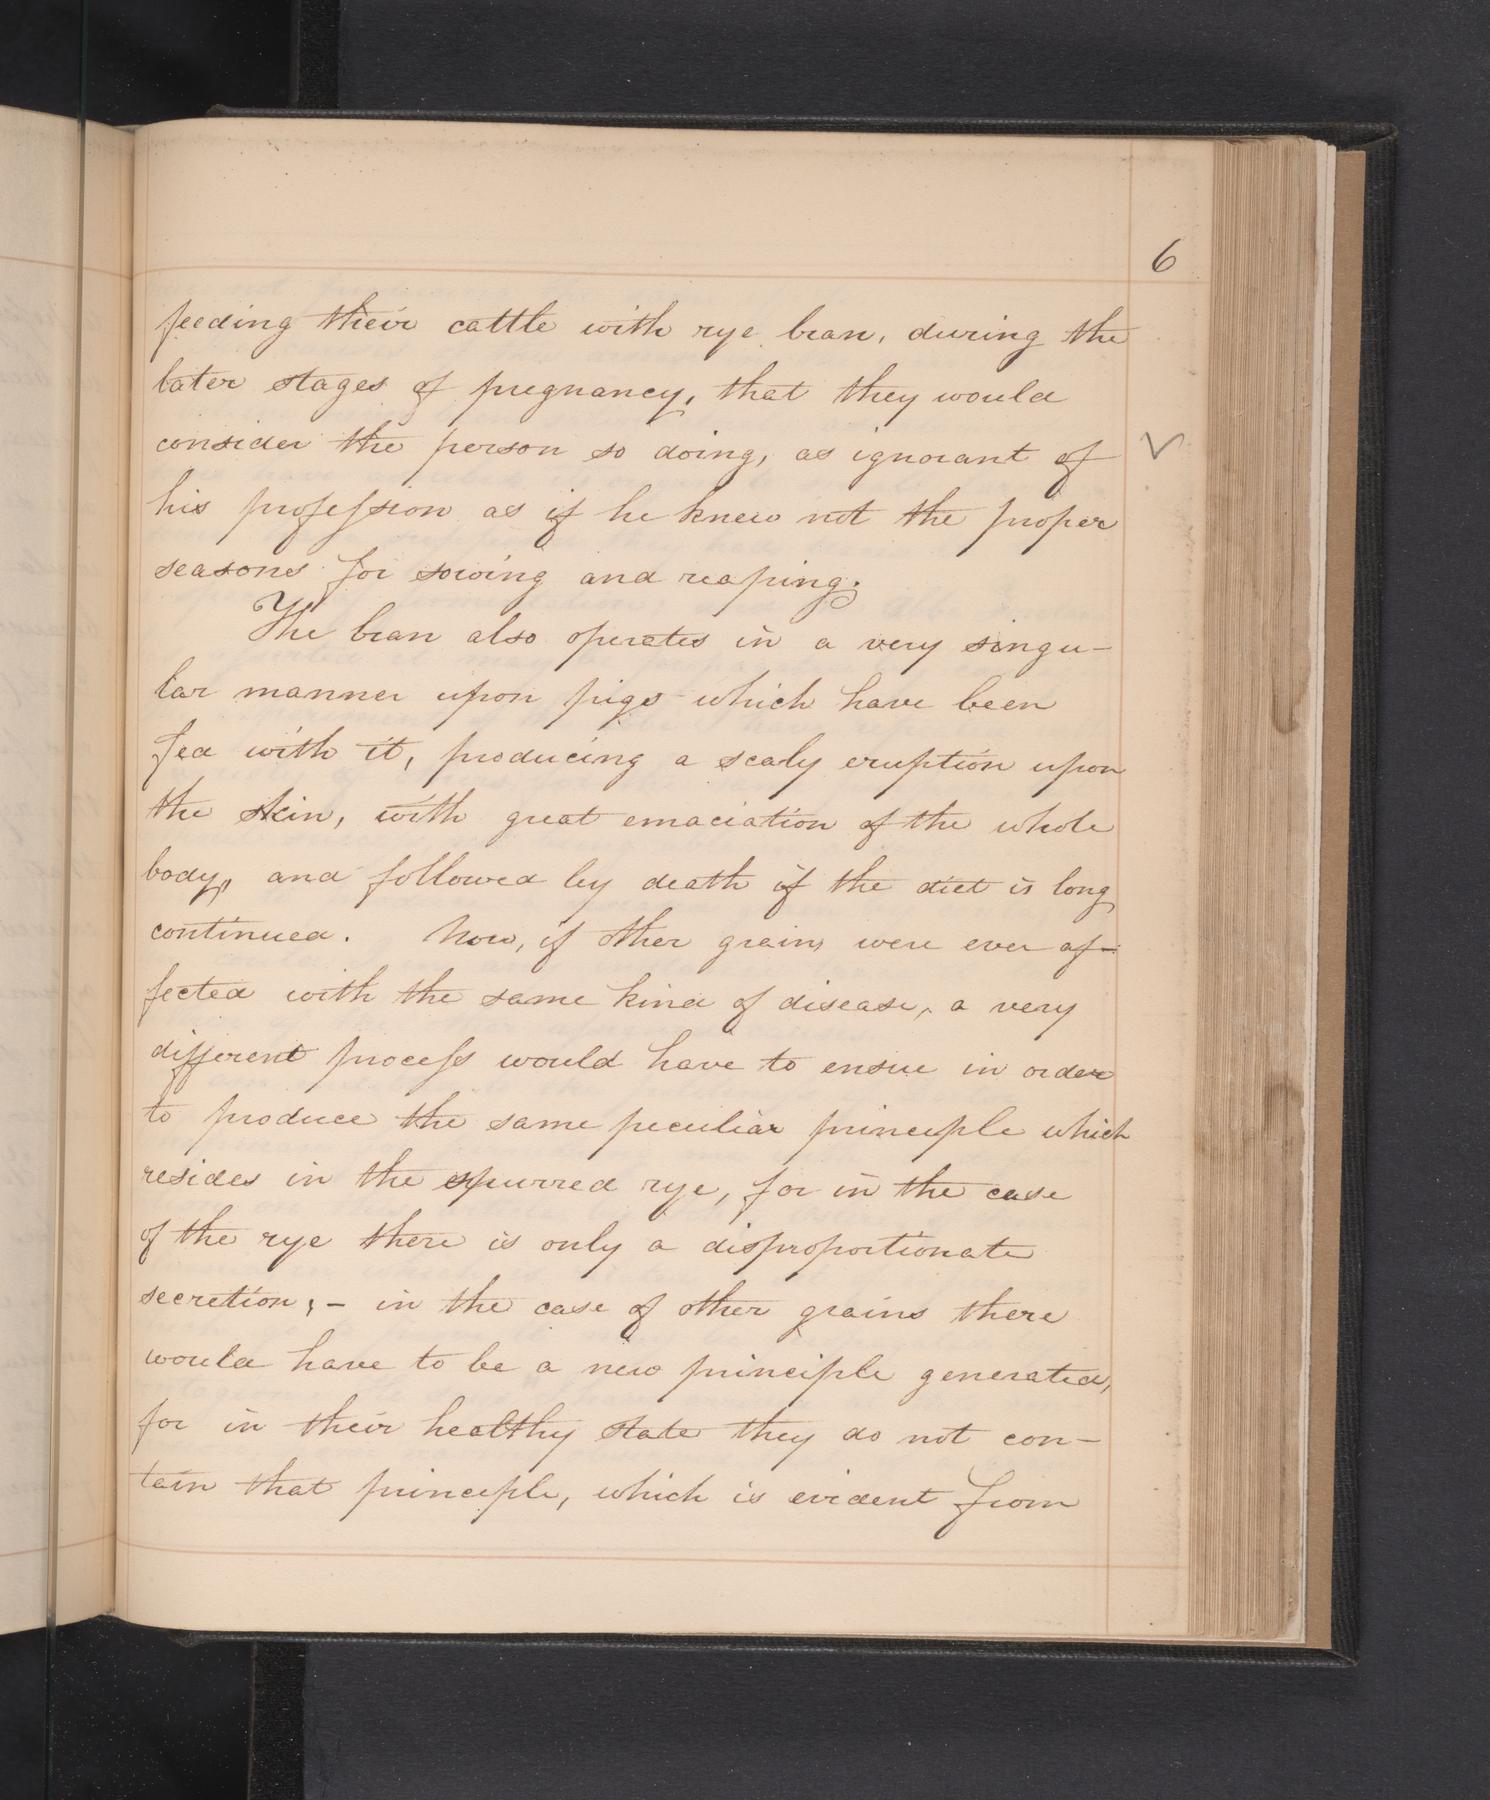 6
feeding their cattle with rye bran, during the
later stages of pregnancy, that they would
consider the person so doing, as ignorant of
his profession as if he knew not the proper
seasons for sowing and reaping.
The bran also operates in a very singu-
lar manner upon pigs which have been
fed with it, producing a scaly eruption upon
the skin, with great emaciation of the whole
body, and followed by death if the diet is long
continued. Now, if other grains were ever af-
fected with the same kind of disease, a very
different process would have to ensue in order
to produce the same peculiar principle which
resides in the spurred rye, for in the case
of the rye there is only a disproportionate
secretion; - in the case of other grains there
would have to be a new principle generated,
for in their healthy state they do not con-
tain that principle, which is evident from